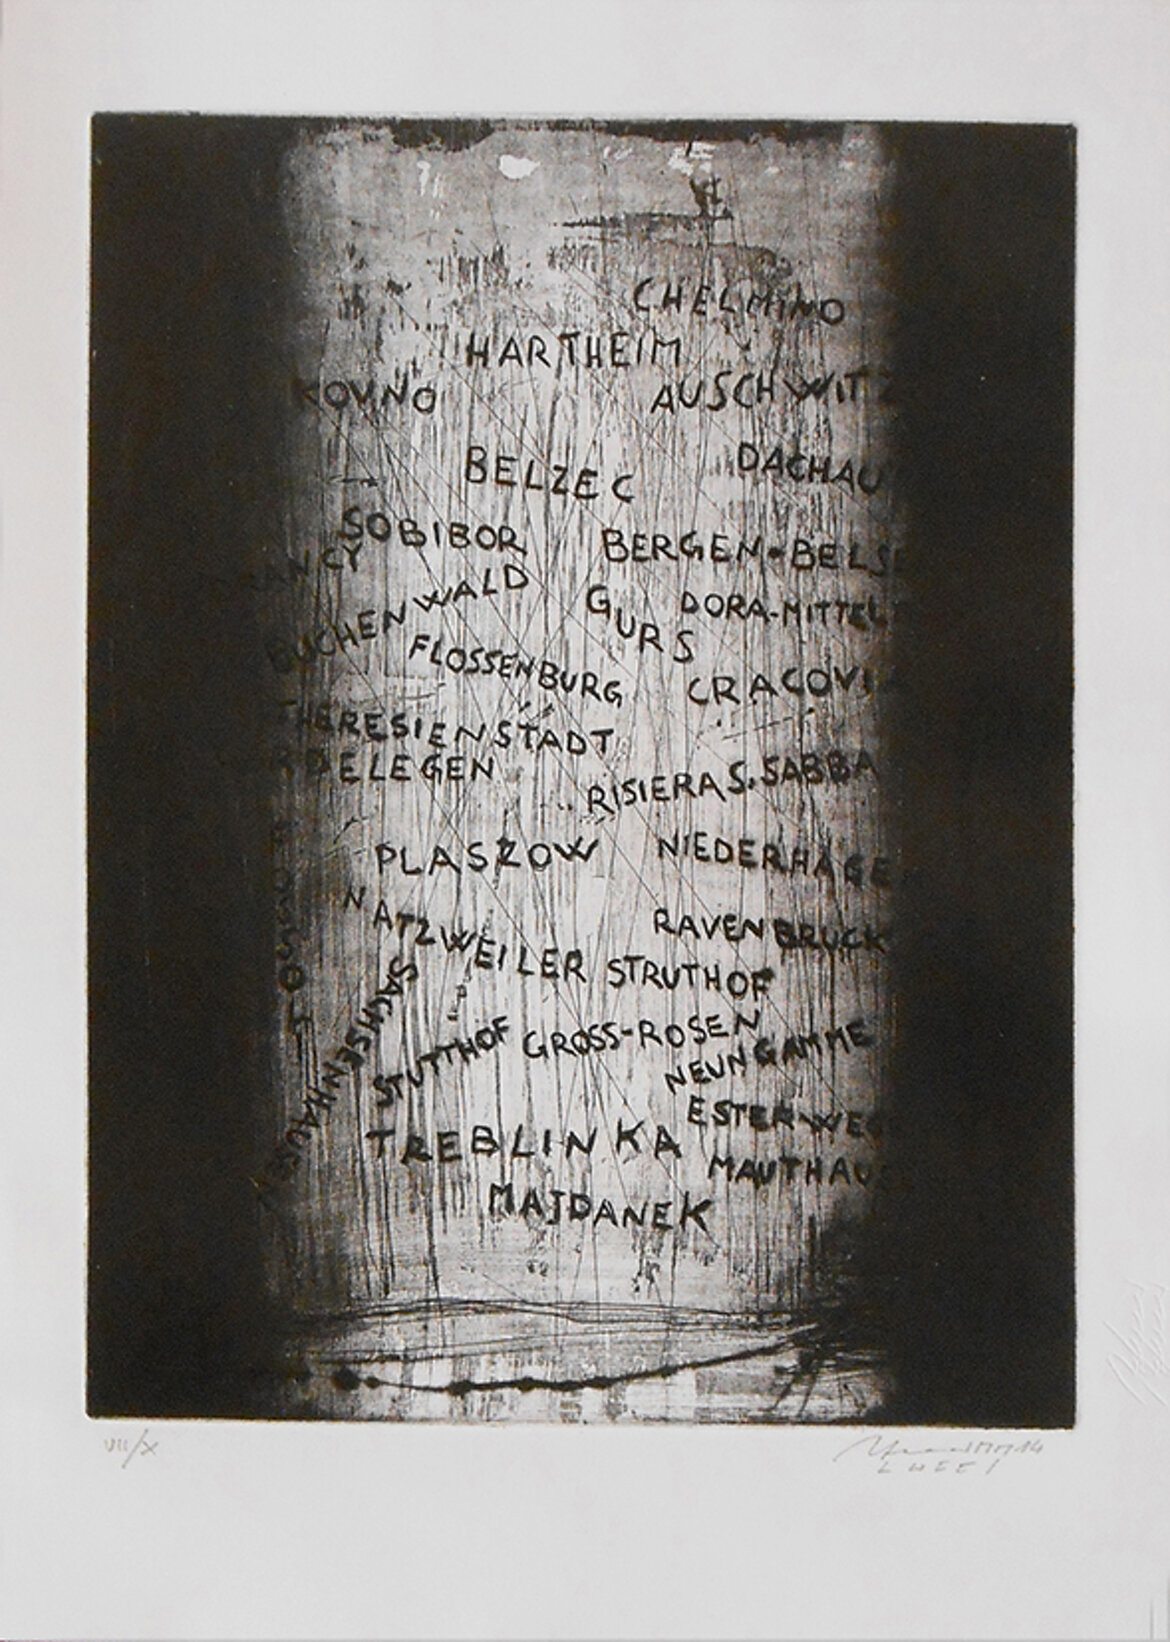 CHELMINO
HARTHEIM
KOVNO AUSCHWITZ
BELZEC DACHAU
SOBIBOR BERGEN-BELSE
ANCY
BUCHENWALD GURS DORA-MITTEL
FLOSSENBURG CRACOVI
THERESIENSTADT
DELEGEN RISIERA S. SABBA
PLASZOW NIEDERHAGE
NATZWEILER STRUTHOF RAVENBRUCK
FOSSOLI
SACHSENHAUSEN
STUTTHOF GROSS-ROSEN
NEUNGAMME
TREBLINKA ESTERWEG
MAUTHAUS
MAJDANEK
VII/X